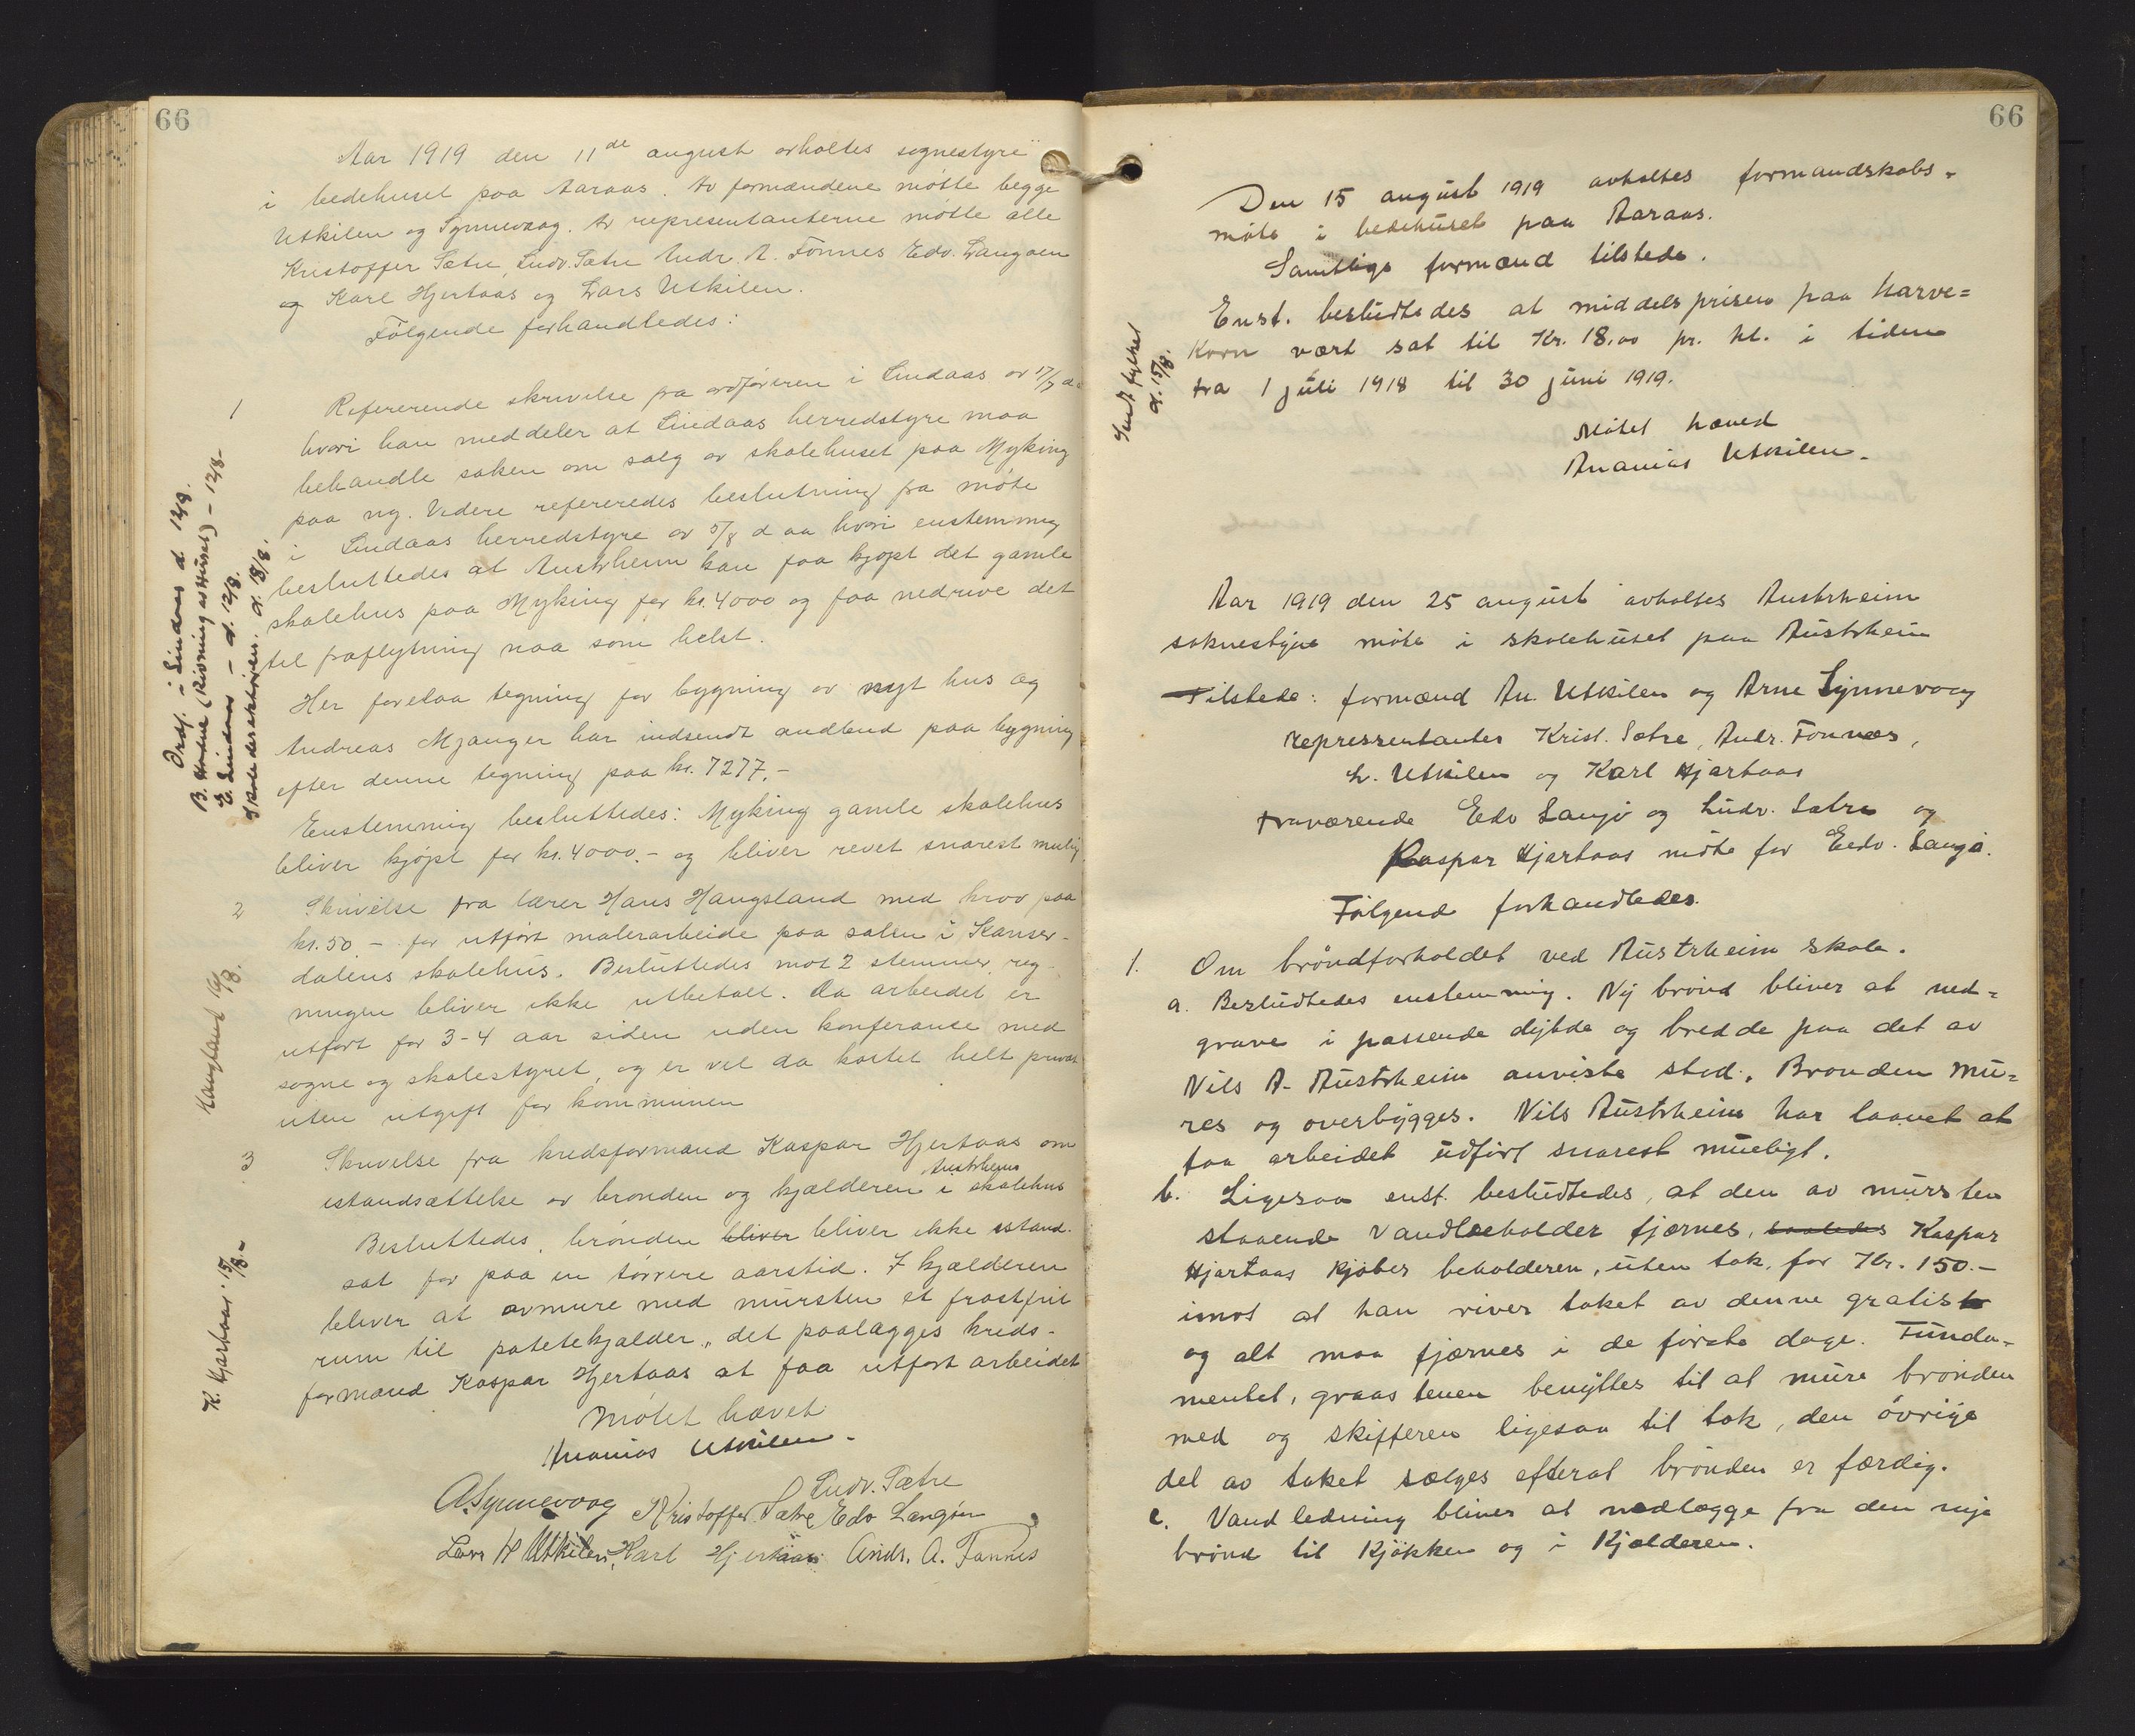 66
Aar 1919 den 11de august avholtes sognestyre
i bedehuset paa Aaraas. Av formændene møtte begge
Utkilen og Synnevaag. Av representanterne møtte alle
Kristoffer Sætre, Ludv. Sætre Andr. A. Fönnes Edv. Langøen
og Karl Hjertaas og Lars Utkilen.
Følgende forhandledes:
1 Refererende skrivelse fra ordføreren i Lindaas av 17/7 d.a
hvori han meddeler at Lindaas herredstyre maa
behandle saken om salg av skolehuset paa Myking
paa ny. Videre refereredes beslutning fra møte
i Lindaas herredstyre av 5/8 d aa hvori enstemmig
besluttedes at Austrheim kan faa kjøpt det gamle
skolehus paa Myking for kr. 4000 og faa nedrive det
til fraflytning naa som helst.
Her forelaa tegning for bygning av nyt hus og
Andreas Mjanger har indsendt andbud paa bygning
efter denne tegning paa kr. 7277.-
Enstemmig besluttedes: Myking gamle skolehus
bliver kjøpt for kr. 4000.- og bliver revet snarest mulig.
Ordf. i Lindaas d. 12/8.
B. Hodne (Rivning av Huset) - 12/8-
E. Lindaas - d. 12/8.
d. 18/8.
2 Skrivelse fra lærer Hans Haugsland med krav paa
kr. 50 - for utført malerarbeide paa salen i Kanser-
dalens skolehus. Besluttedes mot 2 stemmer, reg-
ningen bliver ikke utbetalt. Da arbeidet er
utført for 3-4 aar siden uden konferanse med
sogne og skolestyret, og er vel da kostet helt privat
uten utgift for kommunen
Haugsland 16/8.
3 Skrivelse fra kredsformand Kaspar Hjertaas om
istandsættelse av brønden og kjælderen i Austrheims skolehus
Besluttedes, brønden bliver bliver ikke istand.
sat før paa en tørrere aarstid. I kjælderen
bliver at avmure med mursten et frostfrit
rum til potetekjælder, det paalægges kreds-
formand Kaspar Hjertaas at faa utført arbeidet
K. Hjartaas 15/8.-
Møtet hævet
Ananias Utkilen.
Ludv. Sætre
A. Synnevaag Kristoffer Sætre Edv Langøen
Lars W Utkilen, Karl Hjertaas Andr. A. Fønnes
66
Den 15 august 1919 avholtes formandskabs-
møte i bedehuset paa Aaraas.
Samtlige formænd tilstede.
Enst. besludtedes at middelsprisen paa havre=
korn vært sat til Kr. 18.00 pr. hl. i tiden
fra 1 juli 1918 til 30 juni 1919.
Sendt fylket
d. 15/8.
Møtet hæved
Ananias Utkilen.
Aar 1919 den 25 august avholtes Austrheim
soknestyre møte i skolehuset paa Austrheim
Tilstede: formænd An. Utkilen og Arne Synnevaag
represserntanter Krist. Sætre, Andr. Fønnes,
L. Utkilen og Karl Hjartaas
fraværende Edv Langø og Ludv. Sætre og
Kaspar Hjartaas møte for Edv. Langø.
Følgende forhandledes.
1. Om brøndforholdet ved Austrheim skole.
a. Besludtedes enstemmig. Ny brønd bliver at ned=
grave i passende dybde og bredde paa det av
Nils A. Austrheim anviste sted. Brønden mu=
res og overbygges. Nils Austrheim har laavet at
faa arbeidet udført snarest mueligt.
b. Ligesaa enst. besludtedes, at den av mursten
staaende vandbeholder fjærnes, saaledes Kaspar
Hjartaas kjøber beholderen, uten tak, for Kr. 150.-
imot at han river taket av denne gratis
og alt maa fjærnes i de første dage. Funda-
mentet, graastenen benyttes til at mure brønden
med og skifferen ligesaa til tak, den øvrige
del av taket sælges efterat brønden er færdig.
c. Vandledning bliver at nedlægge fra den nye
brønd til kjøkken og i Kjælderen.